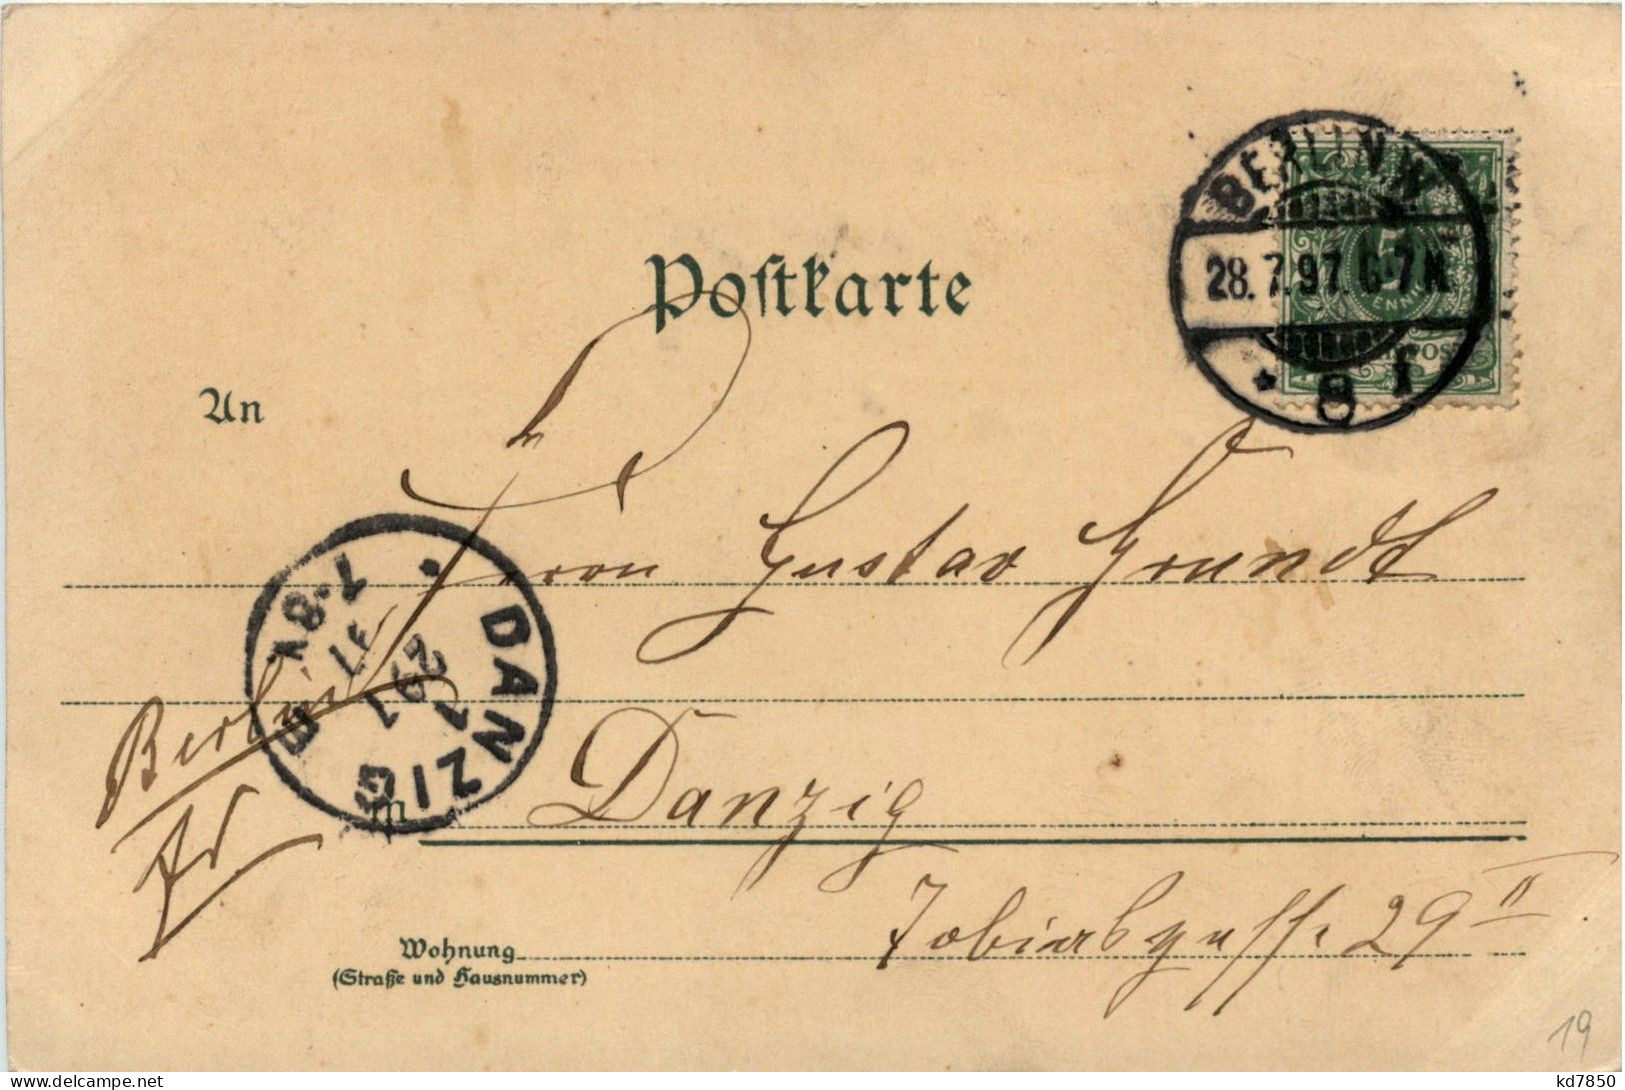 BERLIN N.W.
28.7.97.6-7N.
* 8 f
5
PFENNIG
REICHSPOST
Postkarte
An
Herrn Gustav Grundt
DANZIG
1
29 7
97
7-8V
Berlin
in
Danzig
Tobiasgasse 29 II
Wohnung
(Straße und Hausnummer)
19
kd7850